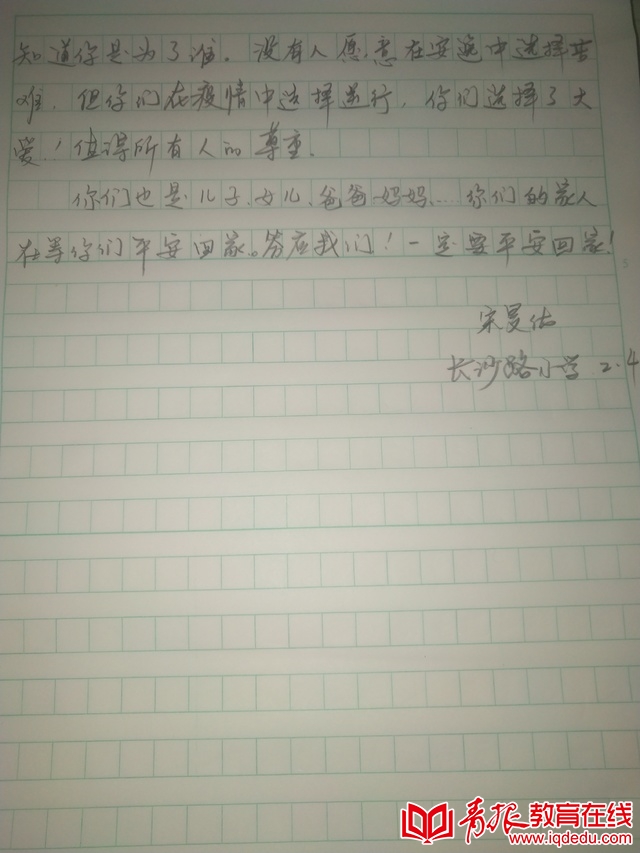 知道你是为了谁。没有人愿意在安逸中选择苦
难，但你们在疫情中选择逆行，你们选择了大
爱！值得所有人的尊重。
你们也是儿子、女儿、爸爸妈妈……你们的家人
在等你们平安回家。答应我们！一定要平安回家！
宋曼佑
长沙路小学 2.4
青报教育在线
www.iqdedu.com